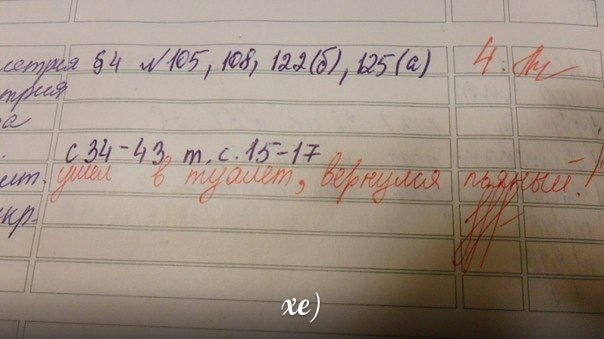 метрия §4 №105, 108, 122(б), 125(а) 4.
трия
а
с 34-43 т. с. 15-17
ит. ушел в туалет, вернулся пьяный!
укр.
хе)